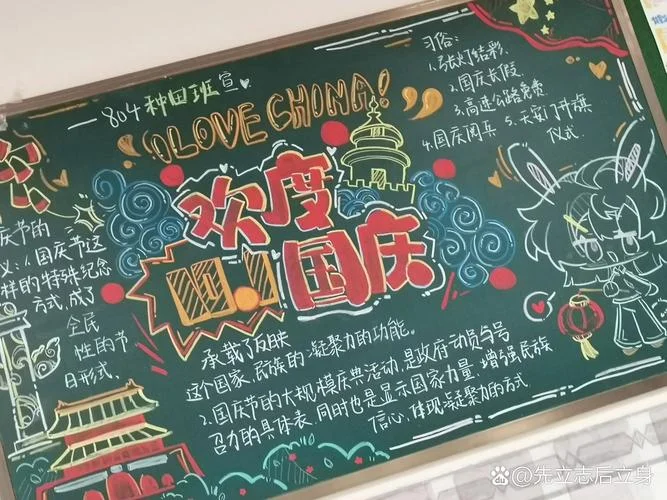 804种田班宣
I LOVE CHINA!
欢度
国庆
习俗:
1.张灯结彩.
2.国庆长假.
3.高速公路免费
4.国庆阅兵 5.天安门升旗
仪式.
庆节的
义:1.国庆节这
样的特殊纪念
方式,成了
全民
性的节
日形式,
承载了反映
这个国家,民族的凝聚力的功能。
2.国庆节的大规模庆典活动,是政府动员与号
召力的具体表,同时也是显示国家力量,增强民族
信心,体现凝聚力的方式
@先立志后立身